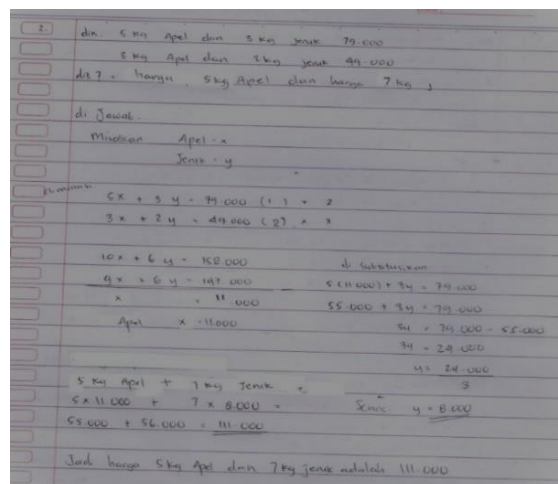 2. dik. 5 kg Apel dan 3 kg jeruk 79.000
3 kg Apel dan 2 kg jeruk 49.000
dit ? = harga 5 kg Apel dan harga 7 kg j
di Jawab.
Misalkan Apel = x
Jeruk = y
Eliminasi
5x + 3y = 79.000 (1) × 2
3x + 2y = 49.000 (2) × 3
10x + 6y = 158.000
9x + 6y = 147.000
x = 11.000
Apel x = 11.000
di Substitusikan
5 (11.000) + 3y = 79.000
55.000 + 3y = 79.000
3y = 79.000 - 55.000
3y = 24.000
y = 24.000
3
Jeruk y = 8.000
5 kg Apel + 7 kg Jeruk =
5 x 11.000 + 7 x 8.000 =
55.000 + 56.000 = 111.000
Jadi harga 5 kg Apel dan 7 kg jeruk adalah 111.000